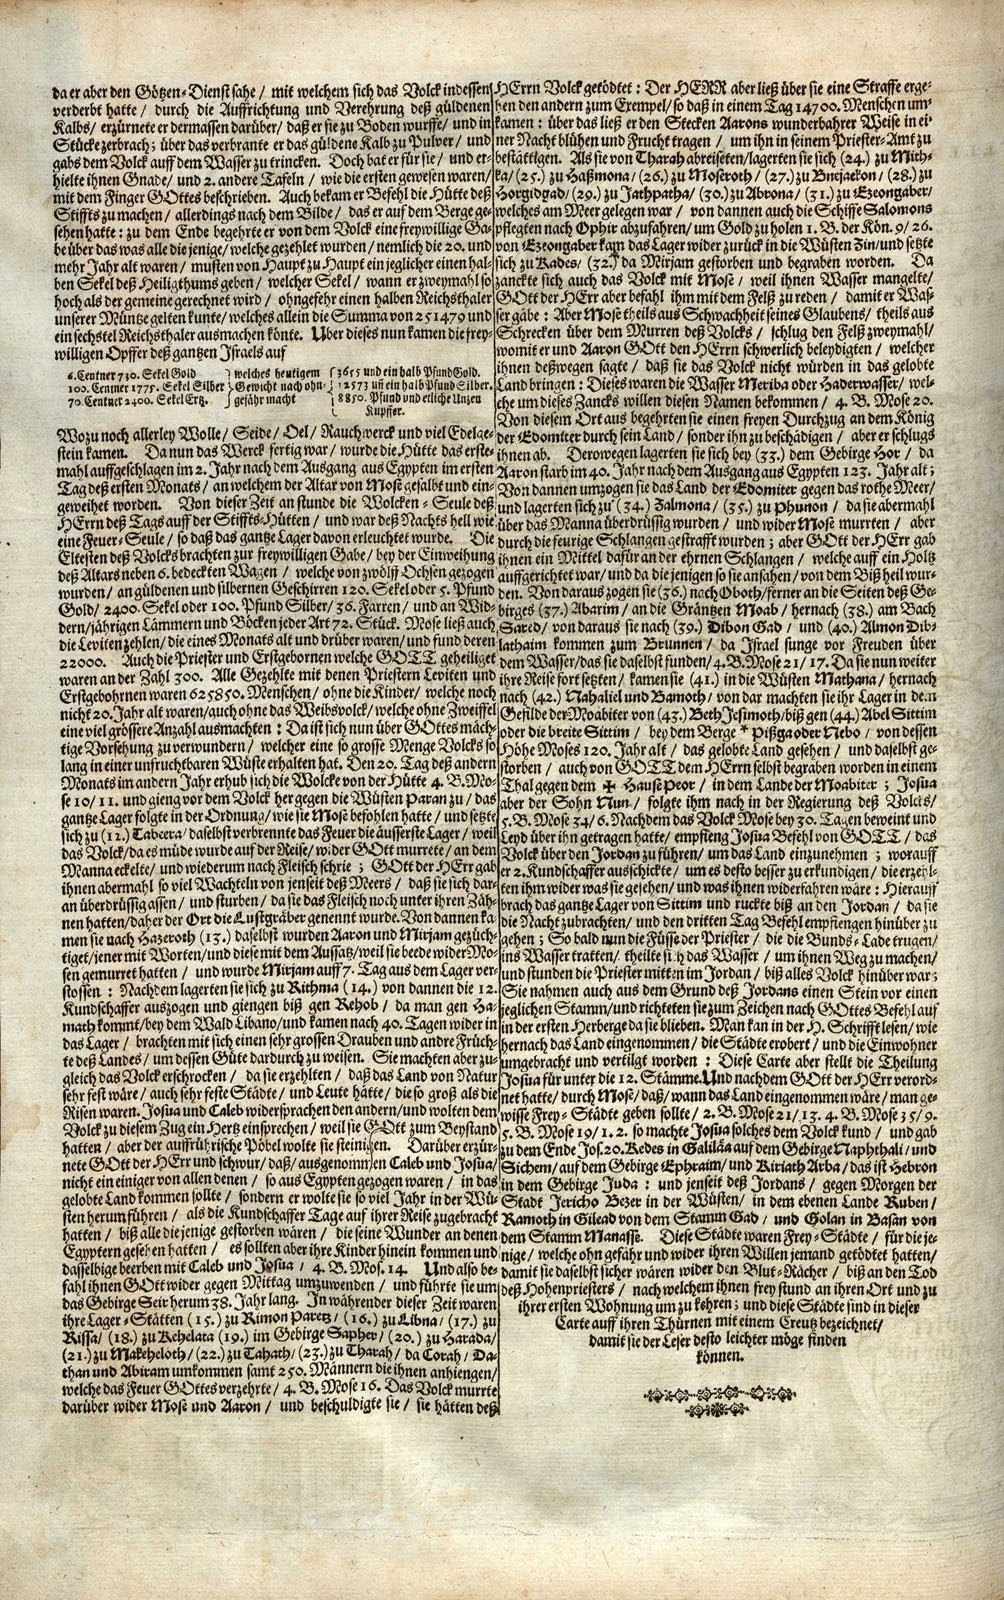 da er aber den Götzen-Dienst sahe / mit welchem sich das Volck indessen
verderbt hatte / durch die Auffrichtung und Verehrung deß güldenen
Kalbs / erzürnete er dermassen darüber / daß er sie zu Boden wurffe / und in
Stücke zerbrach; über das verbrante er das güldene Kalb zu Pulver / und
gabs dem Volck auff dem Wasser zu trincken. Doch bat er für sie / und er-
hielte ihnen Gnade / und 2. andere Tafeln / wie die ersten gewesen waren /
mit dem Finger GOttes beschrieben. Auch bekam er Befehl die Hütte deß
Stiffts zu machen / allerdings nach dem Bilde / das er auf dem Berge ge-
sehen hatte: zu dem Ende begehrte er von dem Volck eine freywillige Ga-
be über das was alle die jenige / welche gezehlet wurden / nemlich die 20. und
mehr Jahr alt waren / musten von Haupt zu Haupt ein jeglicher einen hal-
ben Sekel deß Heiligthums geben / welcher Sekel / wann er zweymahl so
hoch als der gemeine gerechnet wird / ohngefehr einen halben Reichsthaler
unserer Müntze gelten kunte / welches allein die Summa von 251479 und
ein sechstel Reichsthaler ausmachen könte. Uber dieses nun kamen die frey-
willigen Opffer deß gantzen Israels auf
6. Centner 730. Sekel Gold } welches heutigem { 3655 und ein halb Pfund Gold.
100. Centner 1775. Sekel Silber } Gewicht nach ohn- { 12573 uñ ein halb Pfund Silber.
70. Centner 2400. Sekel Ertz. } gefähr macht { 8850. Pfund und etliche Unzen
Kupffer.
Wozu noch allerley Wolle / Seide / Oel / Rauchwerck und viel Edelge-
stein kamen. Da nun das Werck fertig war / wurde die Hütte das erste-
mahl auffgeschlagen im 2. Jahr nach dem Ausgang aus Egypten im ersten
Tag deß ersten Monats / an welchem der Altar von Mose gesalbt und ein-
geweihet worden. Von dieser Zeit an stunde die Wolcken-Seule deß
HErrn deß Tags auff der Stiffts-Hütten / und war deß Nachts hell wie
eine Feuer-Seule / so daß das gantze Lager davon erleuchtet wurde. Die
Eltesten deß Volcks brachten zur freywilligen Gabe / bey der Einweihung
deß Altars neben 6. bedeckten Wagen / welche von zwölff Ochsen gezogen
wurden / an güldenen und silbernen Geschirren 120. Sekel oder 5. Pfund
Gold / 2400. Sekel oder 100. Pfund Silber / 36. Farren / und an Wid-
dern / jährigen Lämmern und Böcken jeder Art 72. Stück. Mose ließ auch
die Leviten zehlen / die eines Monats alt und drüber waren / und fund deren
22000. Auch die Priester und Erstgebornen welche GOTT geheiliget
waren an der Zahl 300. Alle Gezehlte mit denen Priestern Leviten und
Erstgebohrnen waren 625850. Menschen / ohne die Kinder / welche noch
nicht 20. Jahr alt waren / auch ohne das Weibsvolck / welche ohne Zweiffel
eine viel grössere Anzahl ausmachten: Da ist sich nun über GOttes mäch-
tige Vorsehung zu verwundern / welcher eine so grosse Menge Volcks so
lang in einer unfruchtbaren Wüste erhalten hat. Den 20. Tag deß andern
Monats im andern Jahr erhub sich die Wolcke von der Hütte 4. B. Mo-
se 10 / 11. und gieng vor dem Volck her gegen die Wüsten Paran zu / das
gantze Lager folgte in der Ordnung / wie sie Mose befohlen hatte / und setzte
sich zu (12.) Tabeera / daselbst verbrennte das Feuer die äusserste Lager / weil
das Volck / da es müde wurde auf der Reise / wider GOtt murrete / an dem
Manna eckelte / und wiederum nach Fleisch schrie; GOtt der HErr gab
ihnen abermahl so viel Wachteln von jenseit deß Meers / daß sie sich dar-
an überdrüssig assen / und sturben / da sie das Fleisch noch unter ihren Zäh-
nen hatten / daher der Ort die Lustgräber genennt wurde. Von dannen ka-
men sie nach Hazeroth (13.) daselbst wurden Aaron und Mirjam gezüch-
tiget / jener mit Worten / und diese mit dem Aussatz / weil sie beede wider Mo-
sen gemurret hatten / und wurde Mirjam auff 7. Tag aus dem Lager ver-
stossen: Nachdem lagerten sie sich zu Rithma (14.) von dannen die 12.
Kundschaffer auszogen und giengen biß gen Rehob / da man gen Ha-
math kommt / bey dem Wald Libano / und kamen nach 40. Tagen wider in
das Lager / brachten mit sich einen sehr grossen Drauben und andre Früch-
te deß Landes / um dessen Güte dardurch zu weisen. Sie machten aber zu-
gleich das Volck erschrocken / da sie erzehlten / daß das Land von Natur
sehr fest wäre / auch sehr feste Städte / und Leute hätte / die so groß als die
Risen waren. Josua und Caleb widersprachen den andern / und wolten dem
Volck zu diesem Zug ein Hertz einsprechen / weil sie GOtt zum Beystand
hatten / aber der auffrührische Pöbel wolte sie steinigen. Darüber erzür-
nete GOtt der HErr und schwur / daß / ausgenommen Caleb und Josua /
nicht ein einiger von allen denen / so aus Egypten gezogen waren / in das
gelobte Land kommen sollte / sondern er wolte sie so viel Jahr in der Wü-
sten herum führen / als die Kundschaffer Tage auf ihrer Reise zugebracht
hatten / biß alle die jenige gestorben wären / die seine Wunder an denen
Egyptern gesehen hatten / es sollten aber ihre Kinder hinein kommen und
dasselbige beerben mit Caleb und Josua / 4. B. Mos. 14. Und also be-
fahl ihnen GOtt wider gegen Mittag umzuwenden / und führte sie um
das Gebirge Seir herum 38. Jahr lang. In währender dieser Zeit waren
ihre Lager-Stätten (15.) zu Rimon Paretz / (16.) zu Libna / (17.) zu
Rissa / (18.) zu Kehelata (19.) im Gebirge Sapher / (20.) zu Harada /
(21.) zu Makeheloth / (22.) zu Tahath / (23.) zu Tharah / da Corah / Da-
than und Abiram umkommen samt 250. Männern die ihnen anhiengen /
welche das Feuer GOttes verzehrte / 4. B. Mose 16. Das Volck murrte
darüber wider Mose und Aaron / und beschuldigte sie / sie hätten deß
HErrn Volck getödtet: Der HERR aber ließ über sie eine Straffe erge-
hen den andern zum Exempel / so daß in einem Tag 14700. Menschen um-
kamen: über das ließ er den Stecken Aarons wunderbahrer Weise in ei-
ner Nacht blühen und Frucht tragen / um ihn in seinem Priester-Amt zu
bestättigen. Als sie von Tharah abreiseten / lagerten sie sich (24.) zu Mith-
ka / (25.) zu Haßmona / (26.) zu Moseroth / (27.) zu Bnejaekon / (28.) zu
Horgidgad / (29.) zu Jathpatha / (30.) zu Abrona / (31.) zu Ezeongaber /
welches am Meer gelegen war / von dannen auch die Schiffe Salomons
pflegten nach Ophir abzufahren / um Gold zu holen 1. B. der Kön. 9 / 26.
von Ezeongaber kam das Lager wider zurück in die Wüsten Zin / und setzte
sich zu Kades / (32.) da Mirjam gestorben und begraben worden. Da
zanckte sich auch das Volck mit Mose / weil ihnen Wasser mangelte /
GOtt der HErr aber befahl ihm mit dem Felß zu reden / damit er Was-
ser gäbe: Aber Mose theils aus Schwachheit seines Glaubens / theils aus
Schrecken über dem Murren deß Volcks / schlug den Felß zweymahl /
womit er und Aaron GOtt den HErrn schwerlich beleydigten / welcher
ihnen deßwegen sagte / daß sie das Volck nicht würden in das gelobte
Land bringen: Dieses waren die Wasser Meriba oder Haderwasser / wel-
che um dieses Zancks willen diesen Namen bekommen / 4. B. Mose 20.
Von diesem Ort aus begehrten sie einen freyen Durchzug an dem König
der Edomiter durch sein Land / sonder ihn zu beschädigen / aber er schlugs
ihnen ab. Derowegen lagerten sie sich bey (33.) dem Gebirge Hor / da
Aaron starb im 40. Jahr nach dem Ausgang aus Egypten 123. Jahr alt;
Von dannen umzogen sie das Land der Edomiter gegen das rothe Meer /
und lagerten sich zu (34.) Zalmona / (35.) zu Phunon / da sie abermahl
über das Manna überdrüssig wurden / und wider Mose murrten / aber
durch die feurige Schlangen gestrafft wurden; aber GOtt der HErr gab
ihnen ein Mittel dafür an der ehrnen Schlangen / welche auff ein Holtz
auffgerichtet war / und da die jenigen so sie ansahen / von dem Biß heil wur-
den. Von daraus zogen sie (36.) nach Oboth / ferner an die Seiten deß Ge-
birges (37.) Abarim / an die Gräntzen Moab / hernach (38.) am Bach
Sared / von daraus sie nach (39.) Dibon Gad / und (40.) Almon Dib-
lathaim kommen zum Brunnen / da Israel sunge vor Freuden über
dem Wasser / das sie daselbst funden / 4. B. Mose 21 / 17. Da sie nun weiter
ihre Reise fort setzten / kamen sie (41.) in die Wüsten Mathana / hernach
nach (42.) Nahaliel und Bamoth / von dar machten sie ihr Lager in dem
Gefilde der Moabiter von (43.) Beth Jesimoth / biß gen (44.) Abel Sittim
oder die breite Sittim / bey dem Berge * Pißga oder Nebo / von dessen
Höhe Moses 120. Jahr alt / das gelobte Land gesehen / und daselbst ge-
storben / auch von GOTT dem HErrn selbst begraben worden in einem
Thal gegen dem ✠ Hause Peor / in dem Lande der Moabiter; Josua
aber der Sohn Nun / folgte ihm nach in der Regierung deß Volcks /
5. B. Mose 34 / 6. Nachdem das Volck Mose bey 30. Tagen beweint und
Leyd über ihn getragen hatte / empfieng Josua Befehl von GOTT / das
Volck über den Jordan zu führen / um das Land einzunehmen; worauff
er 2. Kundschaffer ausschickte / um es desto besser zu erkundigen / die erzehl-
ten ihm wider was sie gesehen / und was ihnen widerfahren wäre: Hierauff
brach das gantze Lager von Sittim und ruckte biß an den Jordan / da sie
die Nacht zubrachten / und den dritten Tag Befehl empfiengen hinüber zu
gehen; So bald nun die Füsse der Priester / die die Bunds-Lade trugen /
ins Wasser tratten / theilte sich das Wasser / um ihnen Weg zu machen /
und stunden die Priester mitten im Jordan / biß alles Volck hinüber war;
Sie nahmen auch aus dem Grund deß Jordans einen Stein vor einen
jeglichen Stamm / und richteten sie zum Zeichen nach GOttes Befehl auf
in der ersten Herberge da sie blieben. Man kan in der H. Schrifft lesen / wie
hernach das Land eingenommen / die Städte erobert / und die Einwohner
umgebracht und vertilgt worden: Diese Carte aber stellt die Theilung
Josua für unter die 12. Stämme. Und nachdem GOtt der HErr verord-
net hatte / durch Mose / daß / wann das Land eingenommen wäre / man ge-
wisse Frey-Städte geben sollte / 2. B. Mose 21 / 13. 4. B. Mose 35 / 9.
5. B. Mose 19 / 1. 2. so machte Josua solches dem Volck kund / und gab
zu dem Ende Jos. 20. Kedes in Galiläa auf dem Gebirge Naphthali / und
Sichem / auf dem Gebirge Ephraim / und Kiriath Arba / das ist Hebron
in dem Gebirge Juda: und jenseit deß Jordans / gegen Morgen der
Stadt Jericho Bezer in der Wüsten / in dem ebenen Lande Ruben /
Ramoth in Gilead von dem Stamm Gad / und Golan in Basan von
dem Stamm Manasse. Diese Städte waren Frey-Städte / für die je-
nige / welche ohngefähr und wider ihren Willen jemand getödtet hatten /
damit sie daselbst sicher wären wider den Blut-Rächer / biß an den Tod
deß Hohenpriesters / nach welchem ihnen frey stund an ihren Ort und zu
ihrer ersten Wohnung um zu kehren; und diese Städte sind in dieser
Carte auff ihren Thürnen mit einem Creutz bezeichnet /
damit sie der Leser desto leichter möge finden
können.